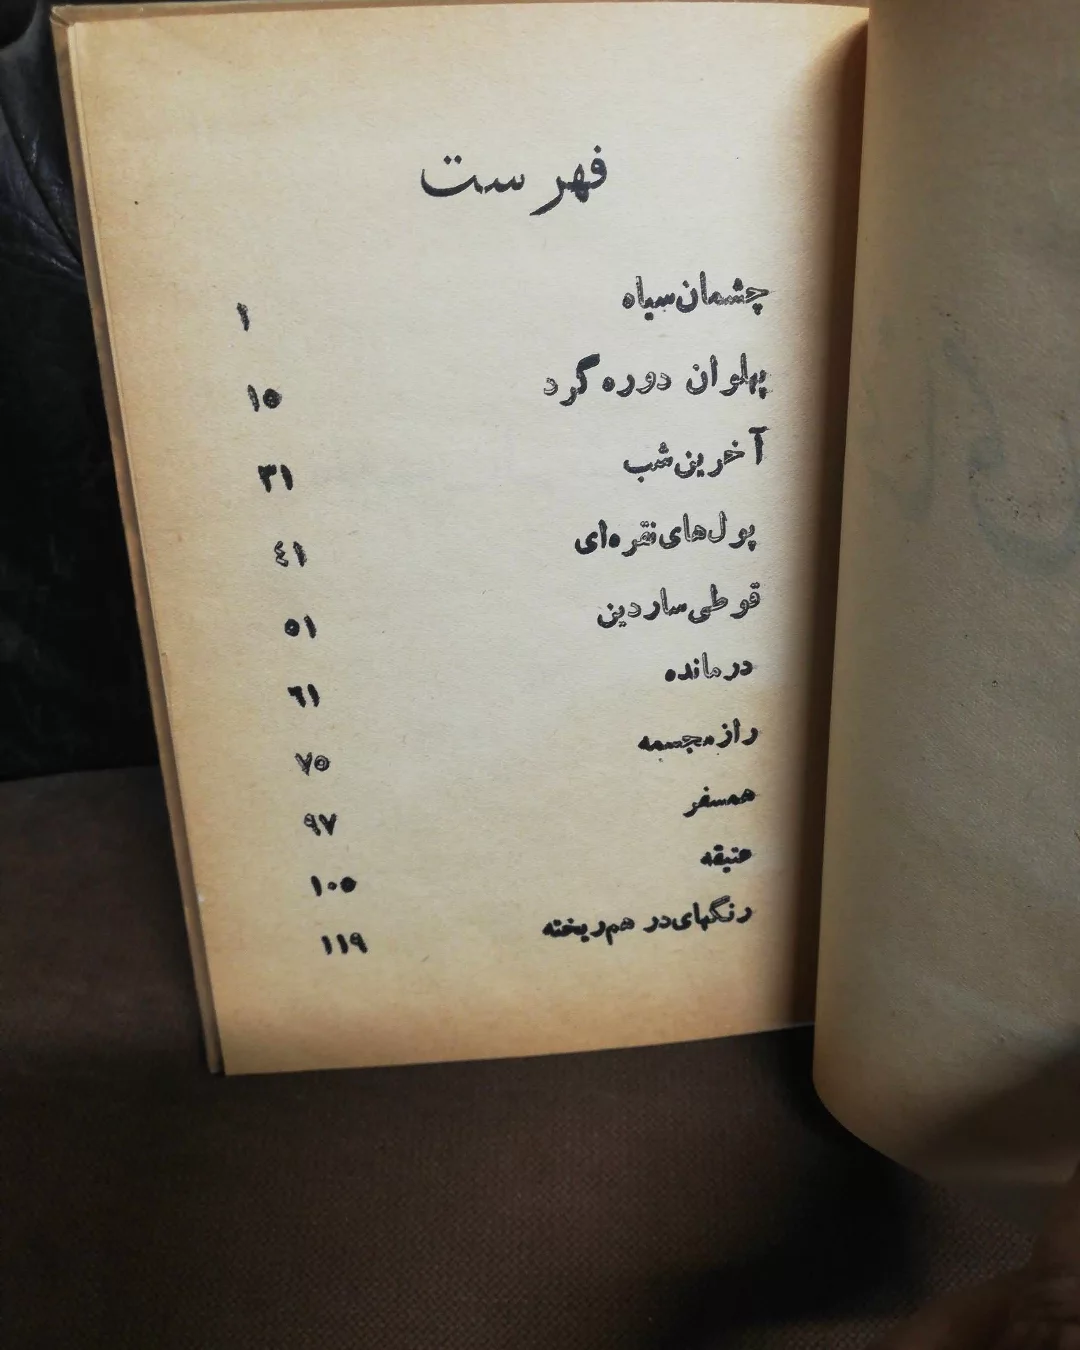 فهرست
چشمان سیاه ۱
پهلوان دوره گرد ۱۵
آخرین شب ۳۱
پول‌های نقره‌ای ٤۱
قوطی ساردین ۵۱
درمانده ٦۱
راز مجسمه ۷۵
همسفر ۹۷
عتیقه ۱۰۵
رنگهای در هم ریخته ۱۱۹